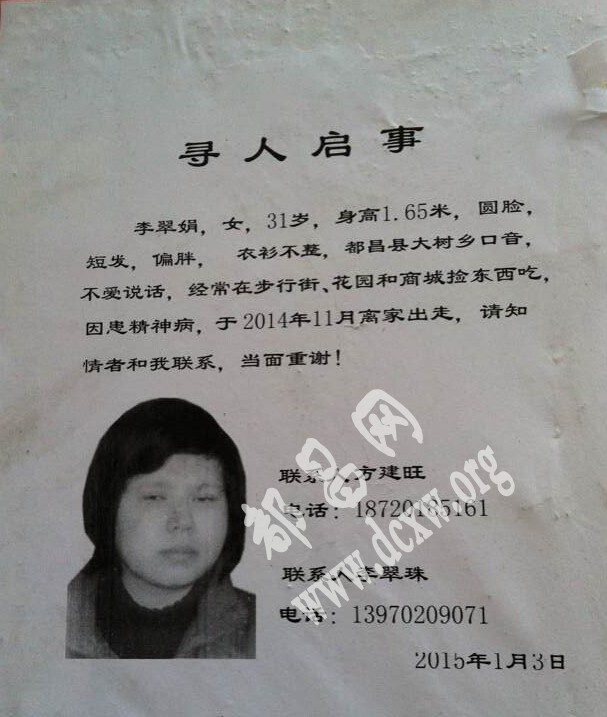 寻人启事
李翠娟，女，31岁，身高1.65米，圆脸，
短发，偏胖， 衣衫不整，都昌县大树乡口音，
不爱说话，经常在步行街、花园和商城捡东西吃，
因患精神病，于2014年11月离家出走，请知
情者和我联系，当面重谢！
联系人方建旺
电话：18720185161
联系人李翠珠
电话：13970209071
2015年1月3日
都昌网
www.dcxw.org